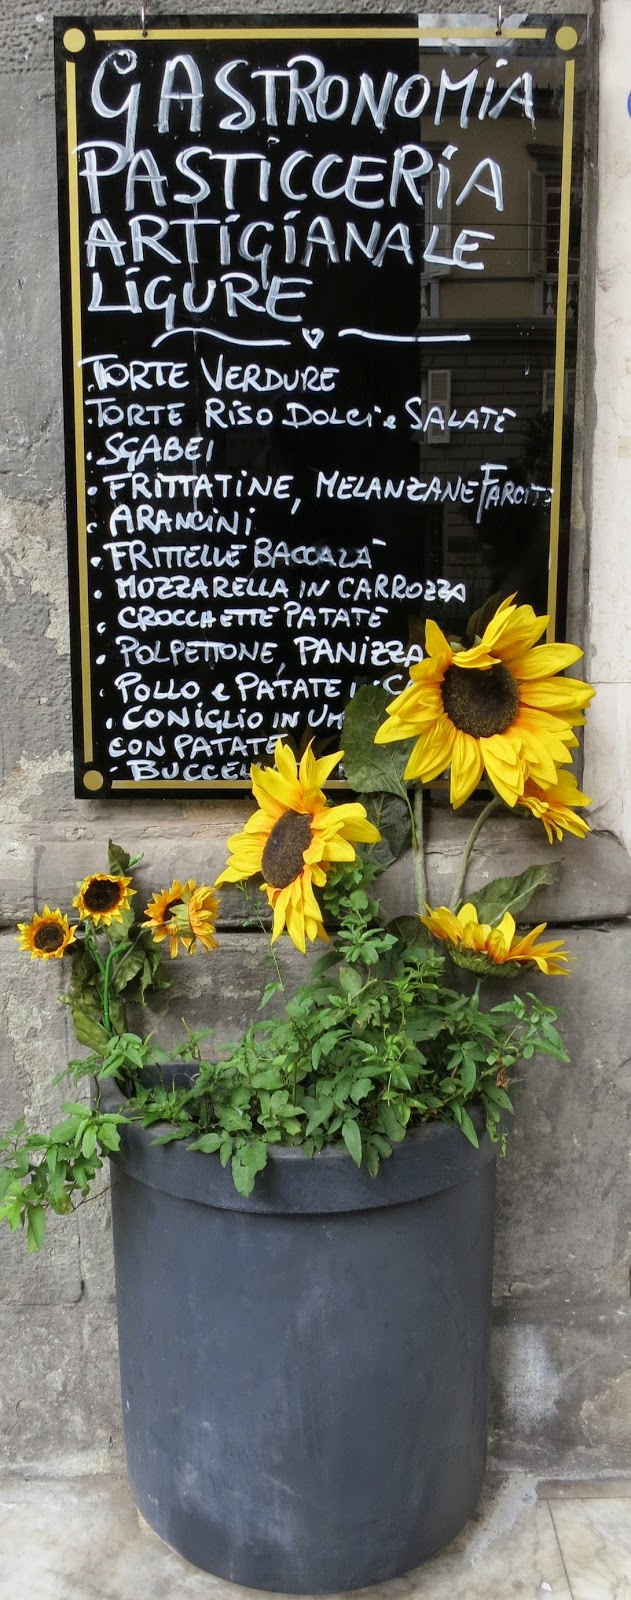 GASTRONOMIA
PASTICCERIA
ARTIGIANALE
LIGURE
·TORTE VERDURE
·TORTE RISO DOLCI e SALATE
·SGABEI
·FRITTATINE, MELANZANE FARCITE
·ARANCINI
·FRITTELLE BACCALÀ
·MOZZARELLA IN CARROZZA
·CROCCHETTE PATATE
·POLPETTONE, PANIZZA
·POLLO e PATATE
·CONIGLIO IN
CON PATATE